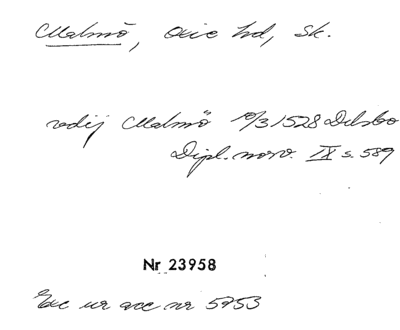 Malmö, Oxie hd, Sk.
vdij Malmö 10/3 1528
Dipl. norv. IX s. 589
Nr 23958
Exc ur acc nr 5953